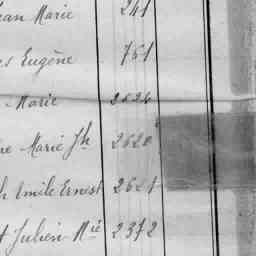 ean Marie 241
es Eugène 761
Marie 2624
ne Marie Jh 2620
h Emile Ernest 2621
t Julien Mie 2372